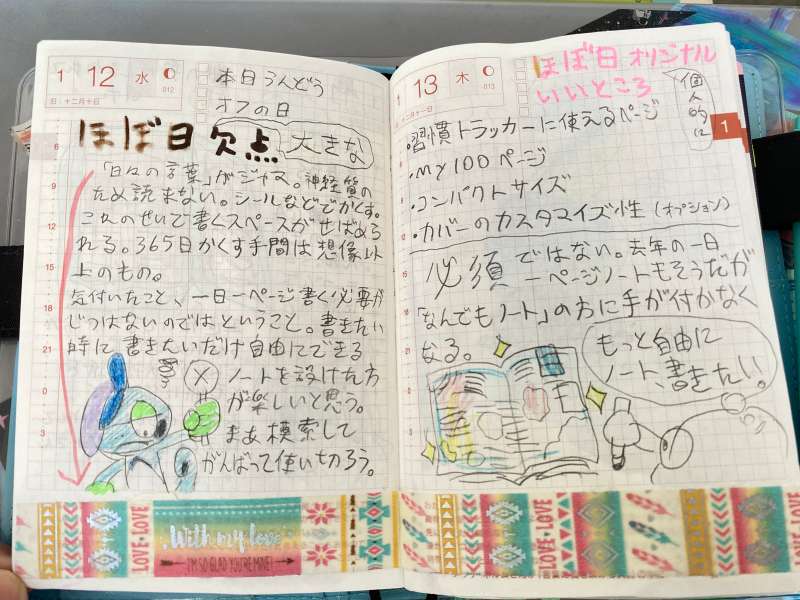 1 12 水 012
日：十二月十日
本日うんどう
オフの日
ほぼ日欠点 大きな
「日々の言葉」がジャマ。神経質の
ため読まない。シールなどでかくす。
これのせいで書くスペースがせばめら
れる。365日かくす手間は想像以
上のもの。
気付いたこと、一日一ページ書く必要が
じつはないのではということ。書きたい
時に書きたいだけ自由にできる
ノートを設けた方
が楽しいと思う。
まあ模索して
がんばって使い切ろう。
6
9
12
15
18
21
0
3
With my love
I'M SO GLAD YOU'RE MINE!
LOVE LOVE
1 13 木 013
十二月十一日
ほぼ日オリジナル
いいところ
個人的に
1
・習慣トラッカーに使えるページ
・MY100ページ
・コンパクトサイズ
・カバーのカスタマイズ性（オプション）
必須ではない。去年の一日
一ページノートもそうだが
「なんでもノート」の方に手が付かなく
なる。
もっと自由に
ノート、書きたい!!
LOVE LOVE